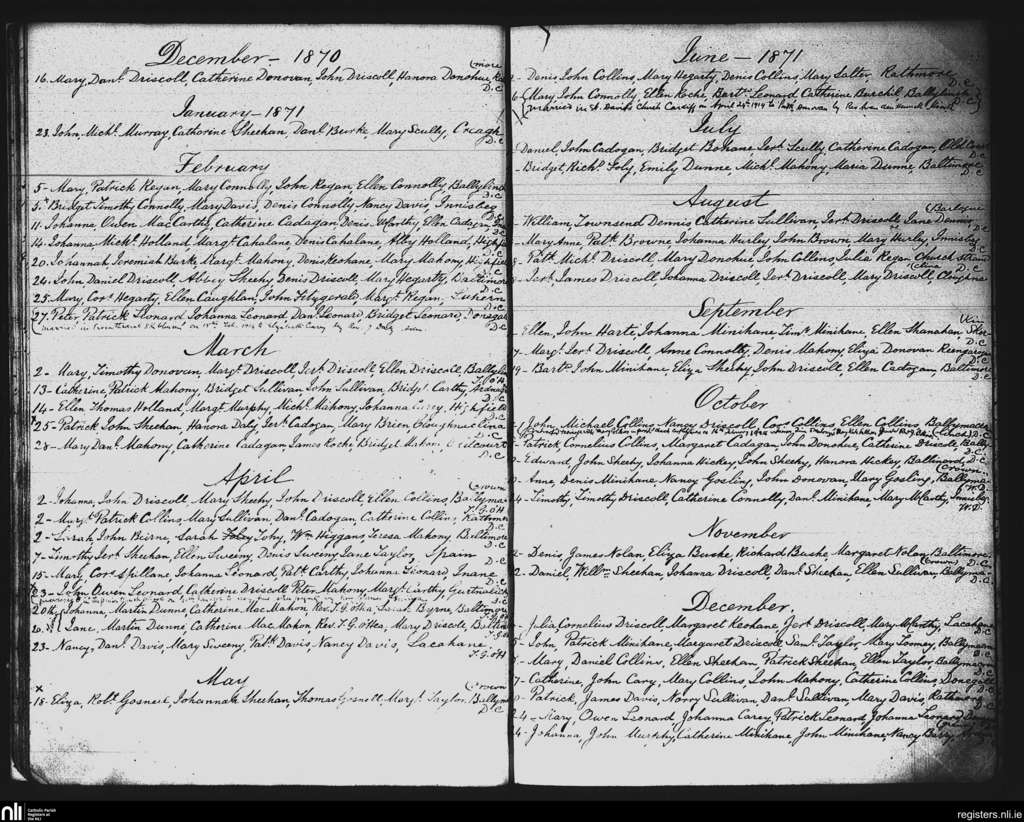 December - 1870
(more
16. Mary, Danl. Driscoll, Catherine Donovan, John Driscoll, Hanora Donohue,
D.C
January - 1871
23. John, Michl. Murray, Catharine Sheehan, Danl Burke, Mary Scully, Creagh
D.C
February
5 - Mary, Patrick Regan, Mary Connolly, John Regan, Ellen Connolly,
D.C
5. Bridget Timothy Connolly, Mary Davis, Denis Connolly Nancy Davis,
D.C
11. Johanna Owen MacCarthy, Catherine Cadagan, Denis McCarthy, Ellen Cadagan,
14. Johanna Michl. Holland, Margt. Cahalane, Denis Cahalane, Abby Holland,
D.C
20. Johannah, Jeremiah Burke Margt. Mahony, Denis Keohane, Mary Mahony
D.C
24. John Daniel Driscoll, Abbey Sheehy Denis Driscoll, Mary Hegarty, Baltimore
25. Mary, Cors. Hegarty, Ellen Caughlan, John Fitzgerald, Margt. Regan,
D.C
27. Peter, Patrick Leonard, Johanna Leonard, Danl. Leonard, Bridget Leonard,
D.C
March
2 - Mary, Timothy Donovan, Margt. Driscoll, Jert. Driscoll, Ellen Driscoll,
T.O'H
13 - Catherine, Patrick Mahony, Bridget Sullivan John Sullivan, Bridgt. Carthy,
D.C
14 - Ellen Thomas Holland, Margt. Murphy, Michl. Mahony, Johanna Carey, Highfield
D.C
25 - Patrick John Sheehan, Hanora Daly, Jert. Cadogan, Mary Brien,
D.C
28 - Mary Danl. Mahony, Catherine Cadagan James Roche, Bridget Mahony,
D.C
April
(Crown
2 - Johanna, John Driscoll, Mary Sheehy, John Driscoll, Ellen Collins,
T.G.O'H
2 - Margt. Patrick Collins, Mary Sullivan, Danl. Cadogan, Catherine Collins, Rathmore
D.C
2 - Sarah John Beirne, Sarah Foley, Wm. Higgans, Teresa Mahony Baltimore
D.C
7 - Timothy Jert. Sheehan, Ellen Sweeny, Denis Sweeny Jane Taylor, Spain
D.C
15 - Mary, Cors. Spillane Johanna Leonard, Patk. Carthy, Johanna Leonard, Inane
D.C
23 - John Owen Leonard, Catherine Driscoll Peter Mahony Margt. Carthy
20th Johanna, Martin Dunne, Catherine MacMahon, Rev. T.G. O'Hea, Sarah Byrne, Baltimore
20. Jane, Martin Dunne, Catherine MacMahon, Rev. T.G. O'Hea, Mary Driscoll,
T.G.O'H
23 - Nancy, Danl. Davis, Mary Sweeny, Patk. Davis, Nancy Davis, Lacahane
T.G.O'H
May
(Crown
x
18 - Eliza, Robt. Gosnell, Johannah Sheehan, Thomas Gosnell, Mary Taylor,
D.C
June - 1871
Denis, John Collins, Mary Hegarty, Denis Collins, Mary Salter, Rathmore
D.C
Mary John Connolly, Ellen Roche, Bart. Leonard Catherine Burchil
D.C
July
Daniel, John Cadogan, Bridget Bohane Jert. Scully Catherine Cadogan,
D.C
Bridget, Richd. Foly, Emily Dunne, Michl. Mahony, Maria Dunne, Baltimore
D.C
August
William, Townsend Dennis Catherine Sullivan, Jert. Driscoll Jane Dennis,
D.C
Mary Anne, Patk. Browne, Johanna Hurley John Brown, Mary Hurly,
D.C
Patk. Michl. Driscoll, Mary Donohue John Collins, Julia Regan Church Strand
D.C
Jert. James Driscoll, Johanna Driscoll, Jert. Driscoll, Mary Driscoll
D.C
September
Ellen, John Harte, Johanna Minihane, Timy. Minihane Ellen Shanahan,
D.C
7 - Margt. Jert. Driscoll, Anne Connolly, Denis Mahony, Eliza Donovan
D.C
19 - Bart. John Minihane, Eliza Sheehy, John Driscoll, Ellen Cadogan, Baltimore
D.C
October
John, Michael Collins, Nancy Driscoll, Cors. Collins, Ellen Collins,
D.C
Patrick, Cornelius Collins, Margaret Cadagan, John Donohue, Catherine Driscoll,
D.C
Edward, John Sheehy, Johanna Hickey, John Sheehy, Hanora Hickey, Baltimore
D.C
(Crown)
Anne, Denis Minihane, Nancy Gosling, John Donovan, Mary Gosling,
W.D.
Timothy, Timothy Driscoll, Catherine Connolly, Danl. Minihane, Mary McCarthy,
W.D.
November
Denis, James Nolan, Eliza Burke, Richard Burke, Margaret Nolan, Baltimore
D.C
(Crown)
2. Daniel, Willm. Sheehan, Johanna Driscoll, Danl. Sheehan, Ellen Sullivan,
D.C
December.
Julia, Cornelius Driscoll, Margaret Keohane, Jert. Driscoll, Mary McCarthy,
D.C
John, Patrick Minihane, Margaret Driscoll, Saml. Taylor, Mary Tomey,
D.C
Mary, Daniel Collins, Ellen Sheehan, Patrick Sheehan, Ellen Taylor,
D.C
7 - Catherine, John Cary, Mary Collins, John Mahony, Catherine Collins, Donegall
D.C
Patrick, James Davis, Norry Sullivan, Danl. Sullivan Mary Davis,
D.C
24 - Mary, Owen Leonard, Johanna Carey, Patrick Leonard, Johanna Leonard
Johanna, John Murphy, Catherine Minihane, John Minihane, Nancy Barry,
nli
Catholic Parish
Registers at
the NLI
registers.nli.ie